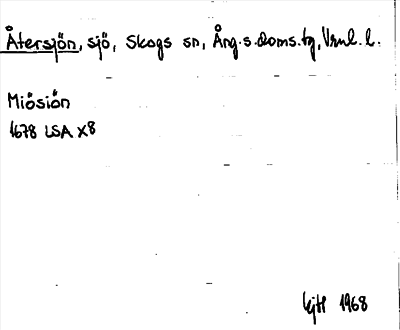 Återsjön, sjö, Skogs sn, Ång.s.doms.tg, Vrnl. l.
Miösiön
1678 LSA X8
1968